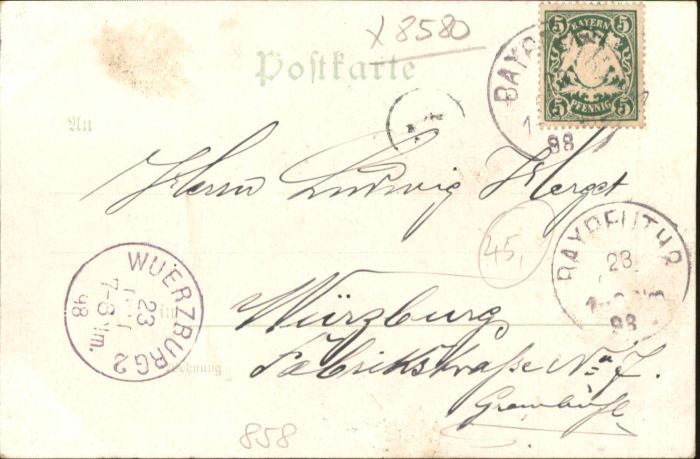 x 8580
Postkarte
5 BAYERN 5
5 PFENNIG 5
BAYR
98
An
Herrn Ludwig Herget
45,
BAYREUTH 2
23
98
WUERZBURG 2
23
7-8 Nm.
98
in
Würzburg
Fabrikstraße No 7.
Wohnung
858